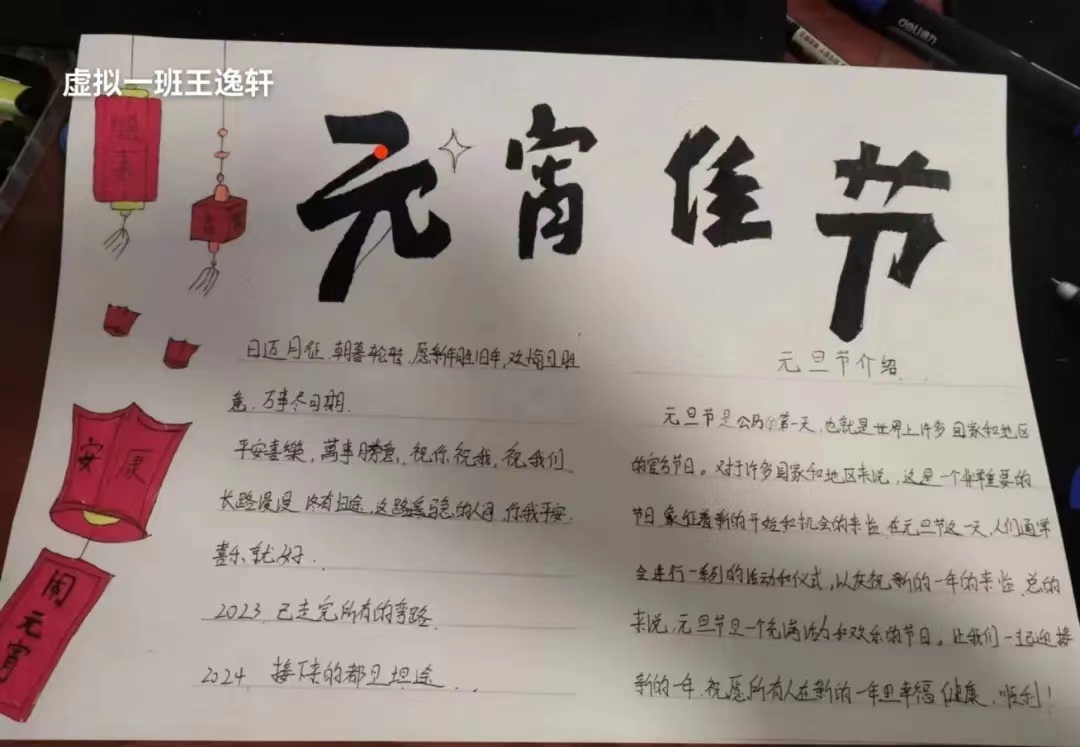 虚拟一班王逸轩
deli
元宵佳节
日迈月征,朝暮轮转,愿新年胜旧年,欢愉且胜
意,万事尽可期.
平安喜樂,萬事勝意,祝你祝我,祝我们
长路漫漫 终有归途,这路遥马急的人间,你我平安
喜乐就好.
2023 已走完所有的弯路
2024 接下来的都是坦途...
元旦节介绍
元旦节是公历的第一天,也就是世界上许多国家和地区
的官方节日。对于许多国家和地区来说,这是一个非常重要的
节日 象征着新的开始和机会的来临 在元旦节这一天,人们通常
会进行一系列的活动和仪式,以庆祝新的一年的来临 总的
来说,元旦节是一个充满活力和欢乐的节日。让我们一起迎接
新的一年,祝愿所有人在新的一年里幸福 健康、顺利!
安康
闹元宵